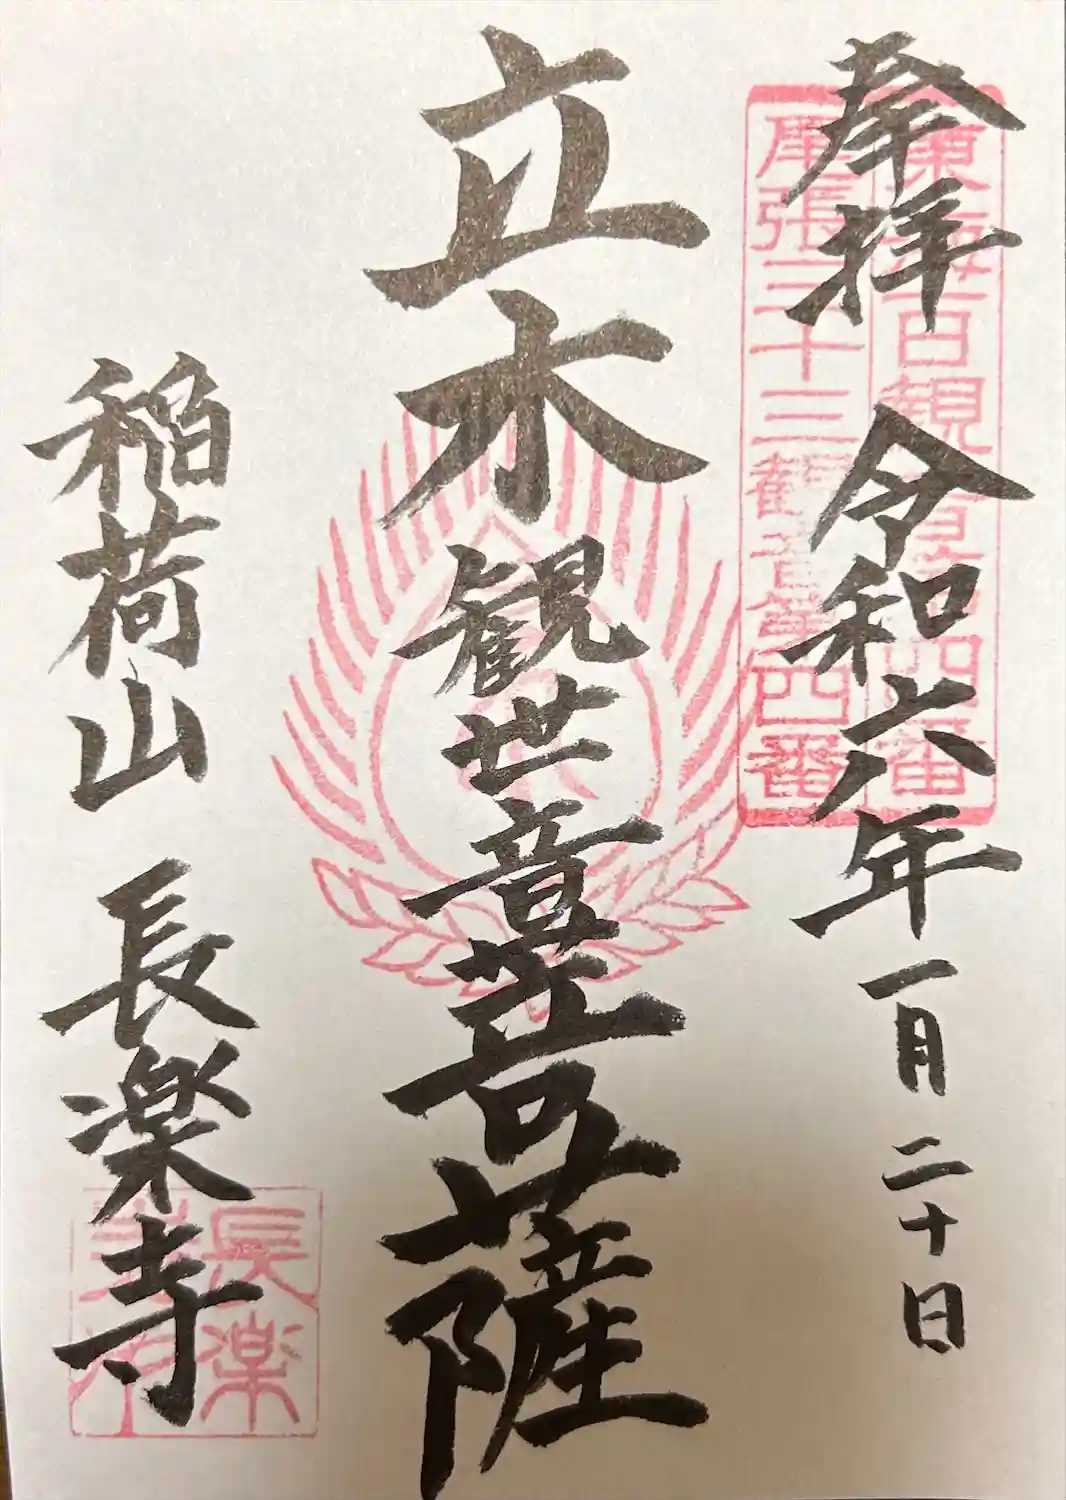 奉拝 令和六年一月二十日
東海百観音第四番
尾張三十三観音第四番
立木観世音菩薩
稲荷山 長楽寺
長楽